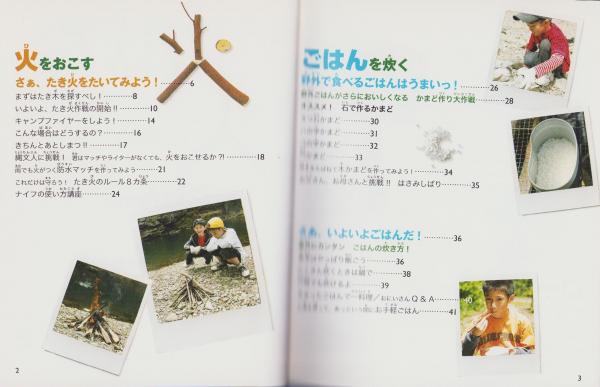 火をおこす
さぁ、たき火をたいてみよう！…………6
まずはたき木を探すべし！…………8
いよいよ、たき火作戦の開始!!…………10
キャンプファイヤーをしよう！…………14
こんな場合はどうするの？…………16
きちんとあとしまつ!!…………17
縄文人に挑戦！ 君はマッチやライターがなくても、火をおこせるか?!…………18
雨でも火がつく防水マッチを作ってみよう…………21
これだけは守ろう！ たき火のルール８カ条…………22
ナイフの使い方講座…………24
2
ごはんを炊く
野外で食べるごはんはうまいっ！…………26
野外ごはんがさらにおいしくなる かまど作り大作戦…………28
オススメ！ 石で作るかまど
かまど…………30
かまど…………31
かまど…………32
かまど…………33
木かまどを作ってみよう！…………34
お母さんと挑戦!! はさみしばり…………35
さあ、いよいよごはんだ！…………36
カンタン ごはんの炊き方！
やっぱり飯ごう…………36
炊くときは鍋で…………38
でも炊けるよ…………39
ごはんで一料理／おにいさんＱ＆Ａ…………40
お手軽ごはん…………41
3